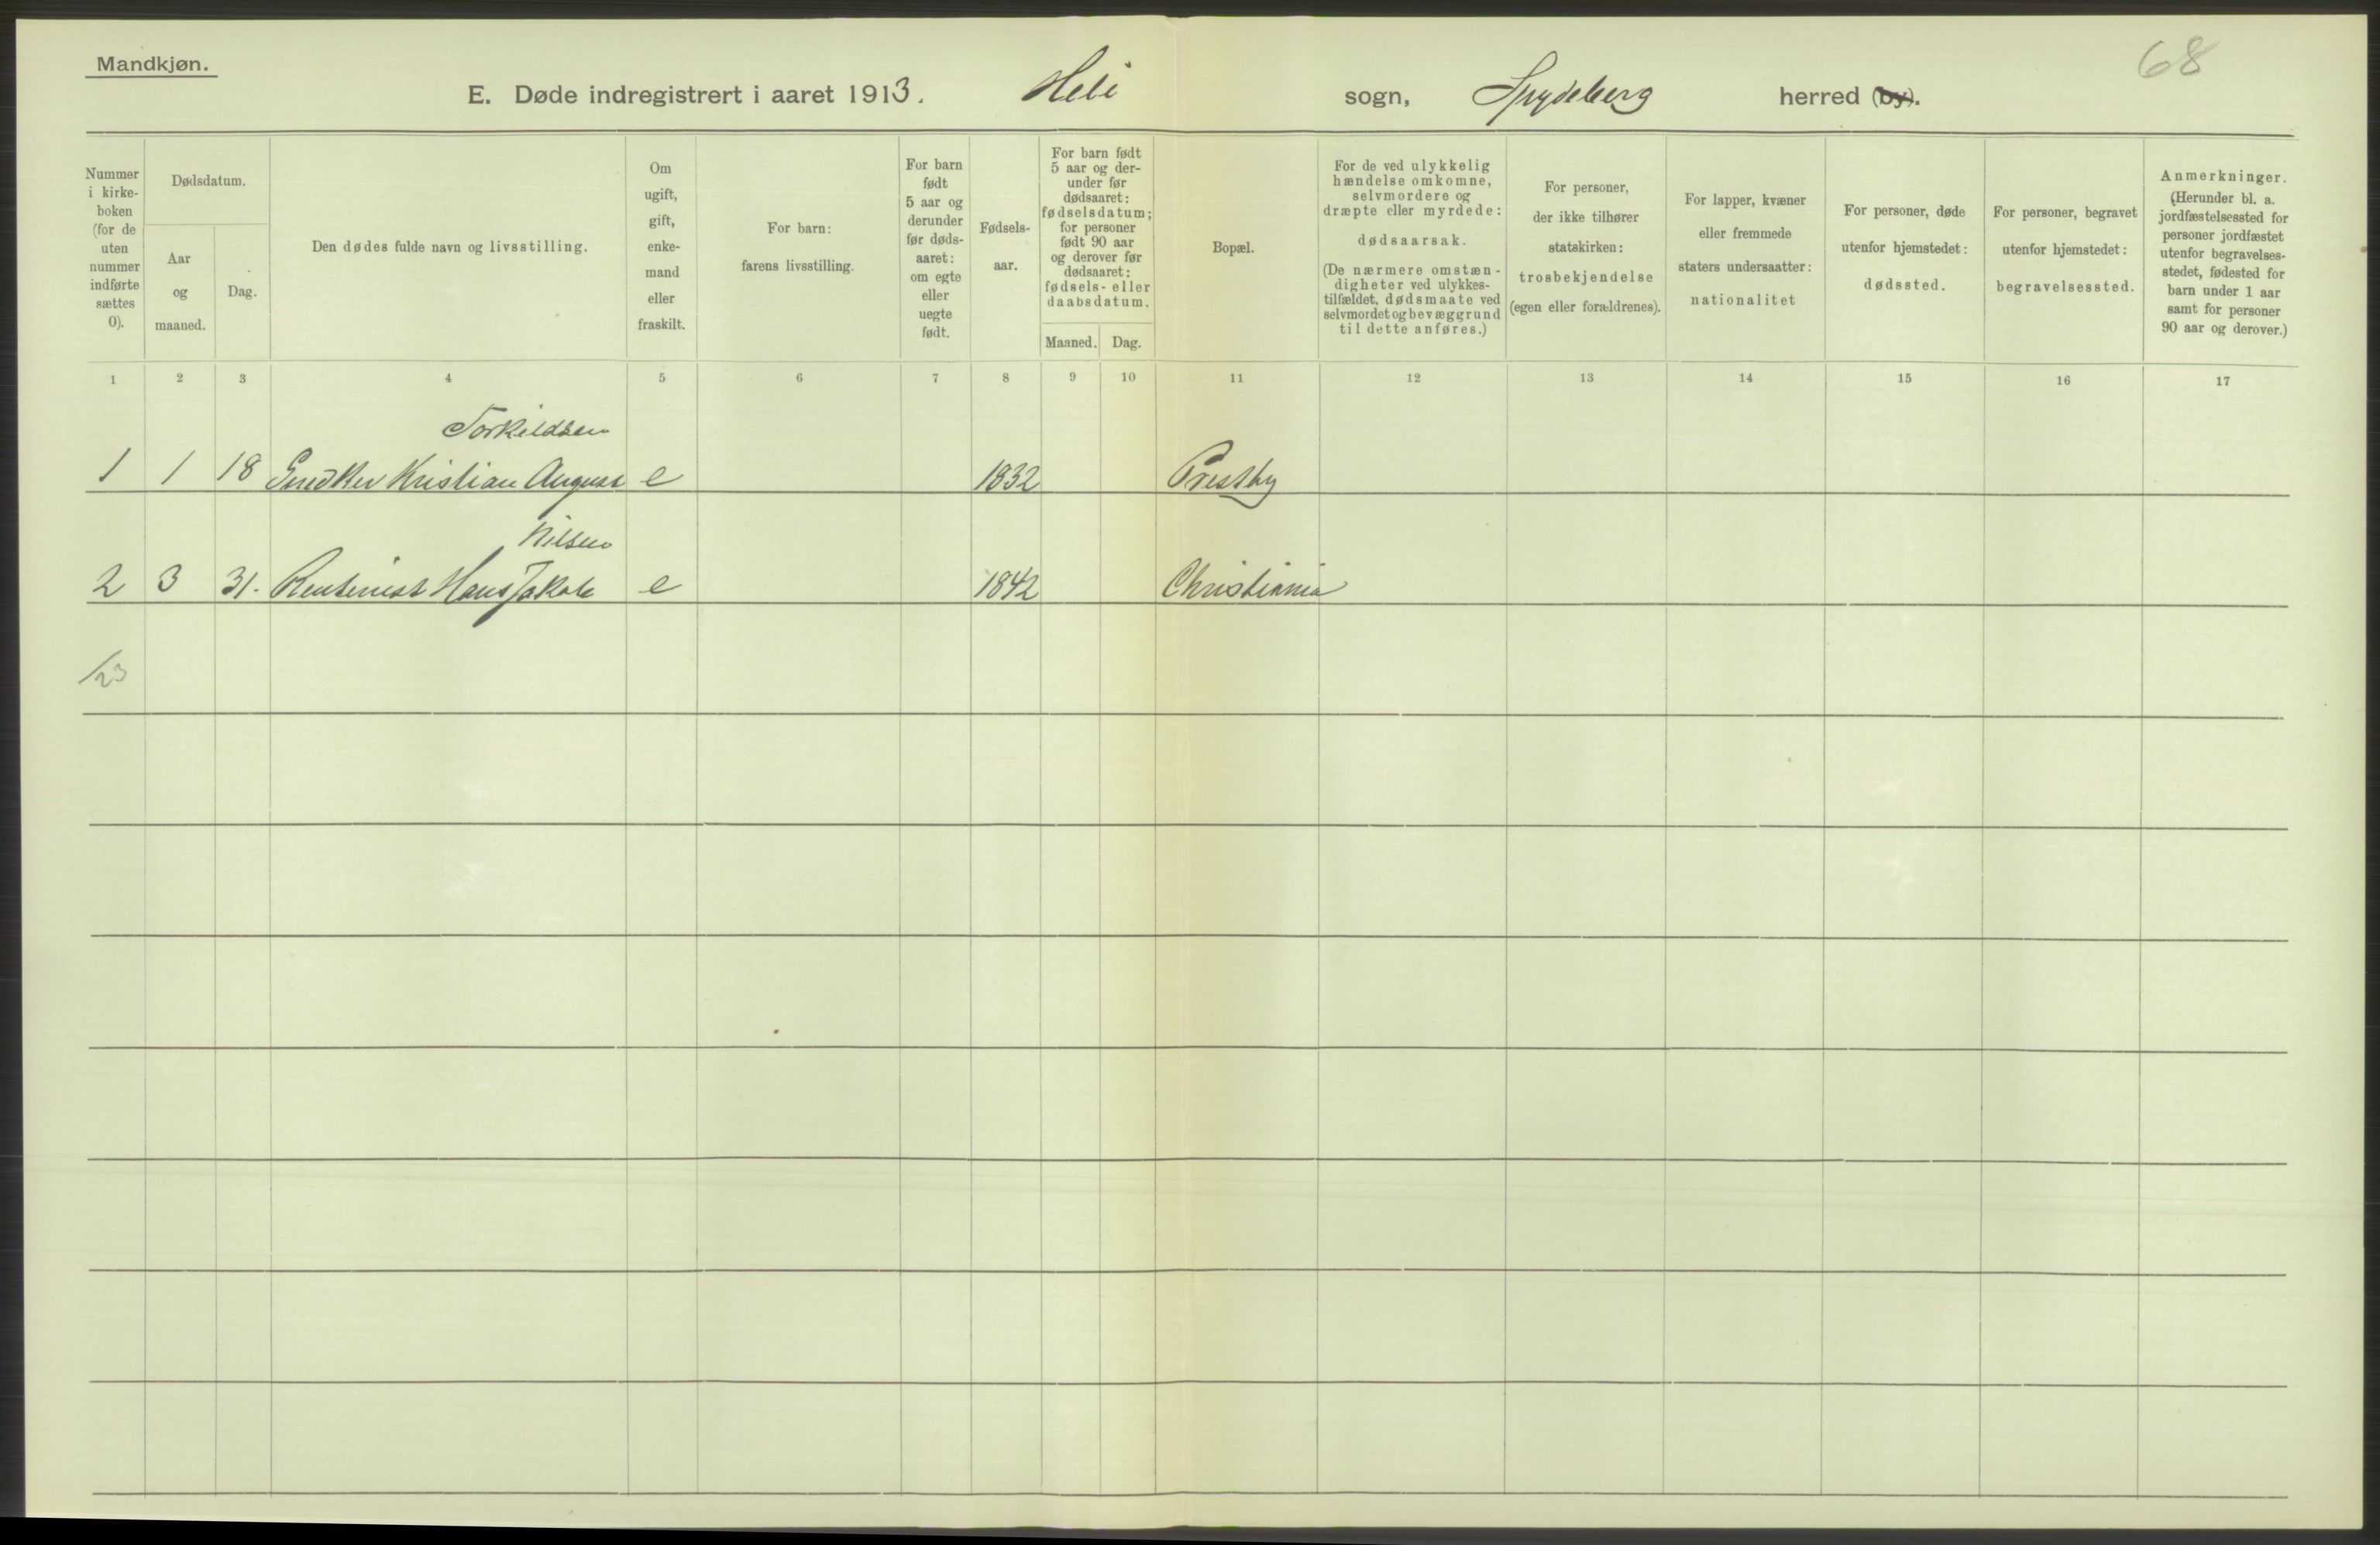 Mandkjøn.
68
E. Døde indregistrert i aaret 1913. Heli sogn, Spydeberg herred (by).
Nummer
i kirke-
boken
(for de
uten
nummer
indførte
sættes
0).
Dødsdatum.
Aar
og
maaned.
Dag.
Den dødes fulde navn og livsstilling.
Om
ugift,
gift,
enke-
mand
eller
fraskilt.
For barn:
farens livsstilling.
For barn
født
5 aar og
derunder
før døds-
aaret:
om egte
eller
uegte
født.
Fødsels-
aar.
For barn født
5 aar og der-
under før
dødsaaret:
fødselsdatum;
for personer
født 90 aar
og derover før
dødsaaret:
fødsels- eller
daabsdatum.
Maaned. Dag.
Bopæl.
For de ved ulykkelig
hændelse omkomne,
selvmordere og
dræpte eller myrdede:
dødsaarsak.
(De nærmere omstæn-
digheter ved ulykkes-
tilfældet, dødsmaate ved
selvmordet og bevæggrund
til dette anføres.)
For personer,
der ikke tilhører
statskirken:
trosbekjendelse
(egen eller forældrenes).
For lapper, kvæner
eller fremmede
staters undersaatter:
nationalitet
For personer, døde
utenfor hjemstedet:
dødssted.
For personer, begravet
utenfor hjemstedet:
begravelsessted.
Anmerkninger.
(Herunder bl. a.
jordfæstelsessted for
personer jordfæstet
utenfor begravelses-
stedet, fødested for
barn under 1 aar
samt for personer
90 aar og derover.)
1 2 3 4 5 6 7 8 9 10 11 12 13 14 15 16 17
Torkildsen
1 1 18 Snedker Kristian August e 1832 Prestby
Nilsen
2 3 31. Rentenist Hans Jakob e 1842 Christiania